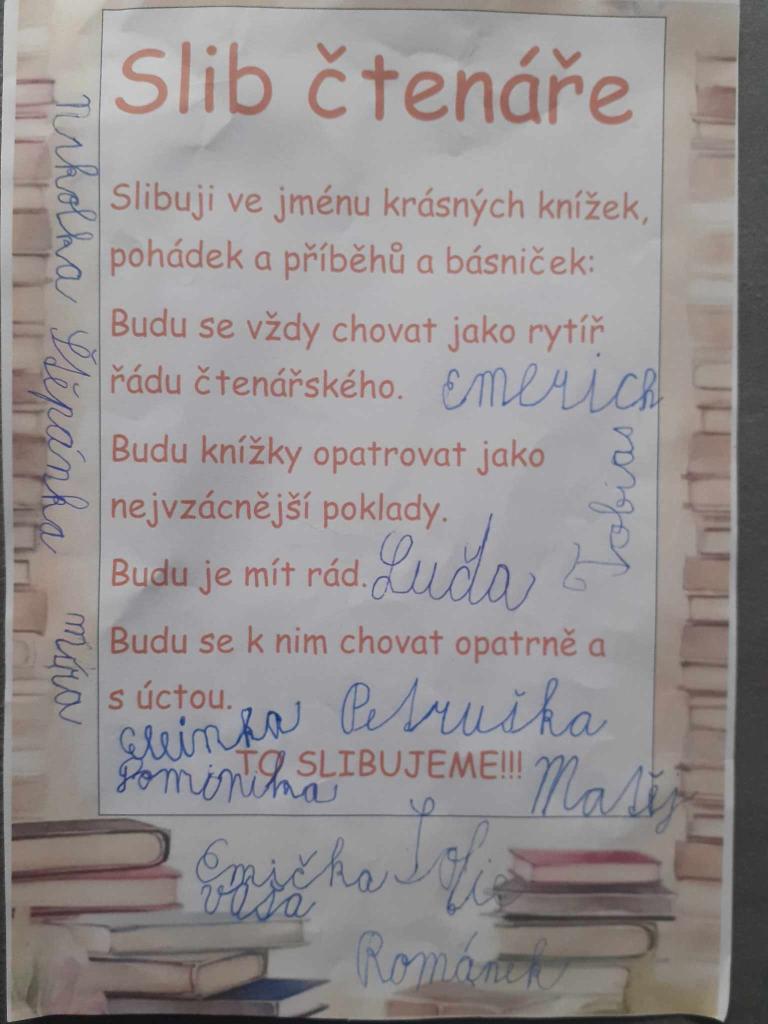 Slib čtenáře
Slibuji ve jménu krásných knížek,
pohádek a příběhů a básniček:
Budu se vždy chovat jako rytíř
řádu čtenářského.
Emerich
Budu knížky opatrovat jako
nejvzácnější poklady.
Tobias
Budu je mít rád.
Luďa
Budu se k nim chovat opatrně a
s úctou.
Petruška
TO SLIBUJEME!!!
Dominika
Matěj
Emička
Sofie
Váša
Románek
Nikolka
Štěpánka
Míra